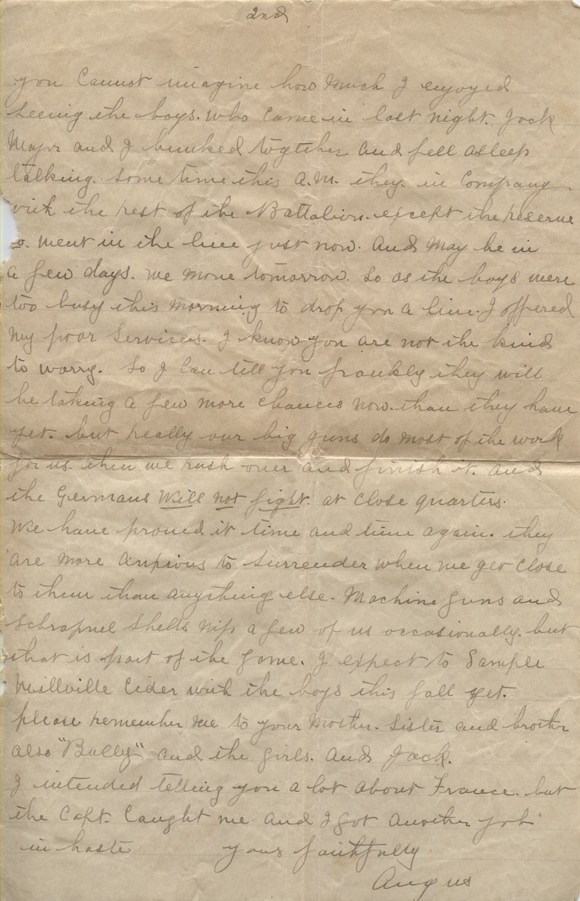 2nd
you Cannot imagine how Much I enjoyed
seeing the boys. who Came in last night. Jack
Major and I bunked together and fell asleep
talking. Some time this A.M. they. in Company
with the rest of the Battalion. except the reserve
s. went in the line just now. And May be in
a few days. we move tomorrow. So as the boys were
too busy this Morning to drop you a line. I offered
My poor Services. I know you are not the kind
to worry. So I Can tell you frankly they will
be taking a few more chances now. than they have
yet. but really our big guns do most of the work
for us then we rush over and finish it. and
the Germans Will not fight. at Close quarters.
We have proved it time and time again. they
are More Anxious to Surrender when we get Close
to them than Anything else. Machine guns and
Schrapnel Shells Nip a few of us occasionally. but
that is part of the game. I expect to Sample
Millville Cider with the boys this fall yet.
please remember Me to your Mother. Sister and brother
also "Bully" and the girls. And Jack.
I intended telling you a lot About France. but
the Capt. Caught me And I got Another job
in haste yours faithfully
Angus